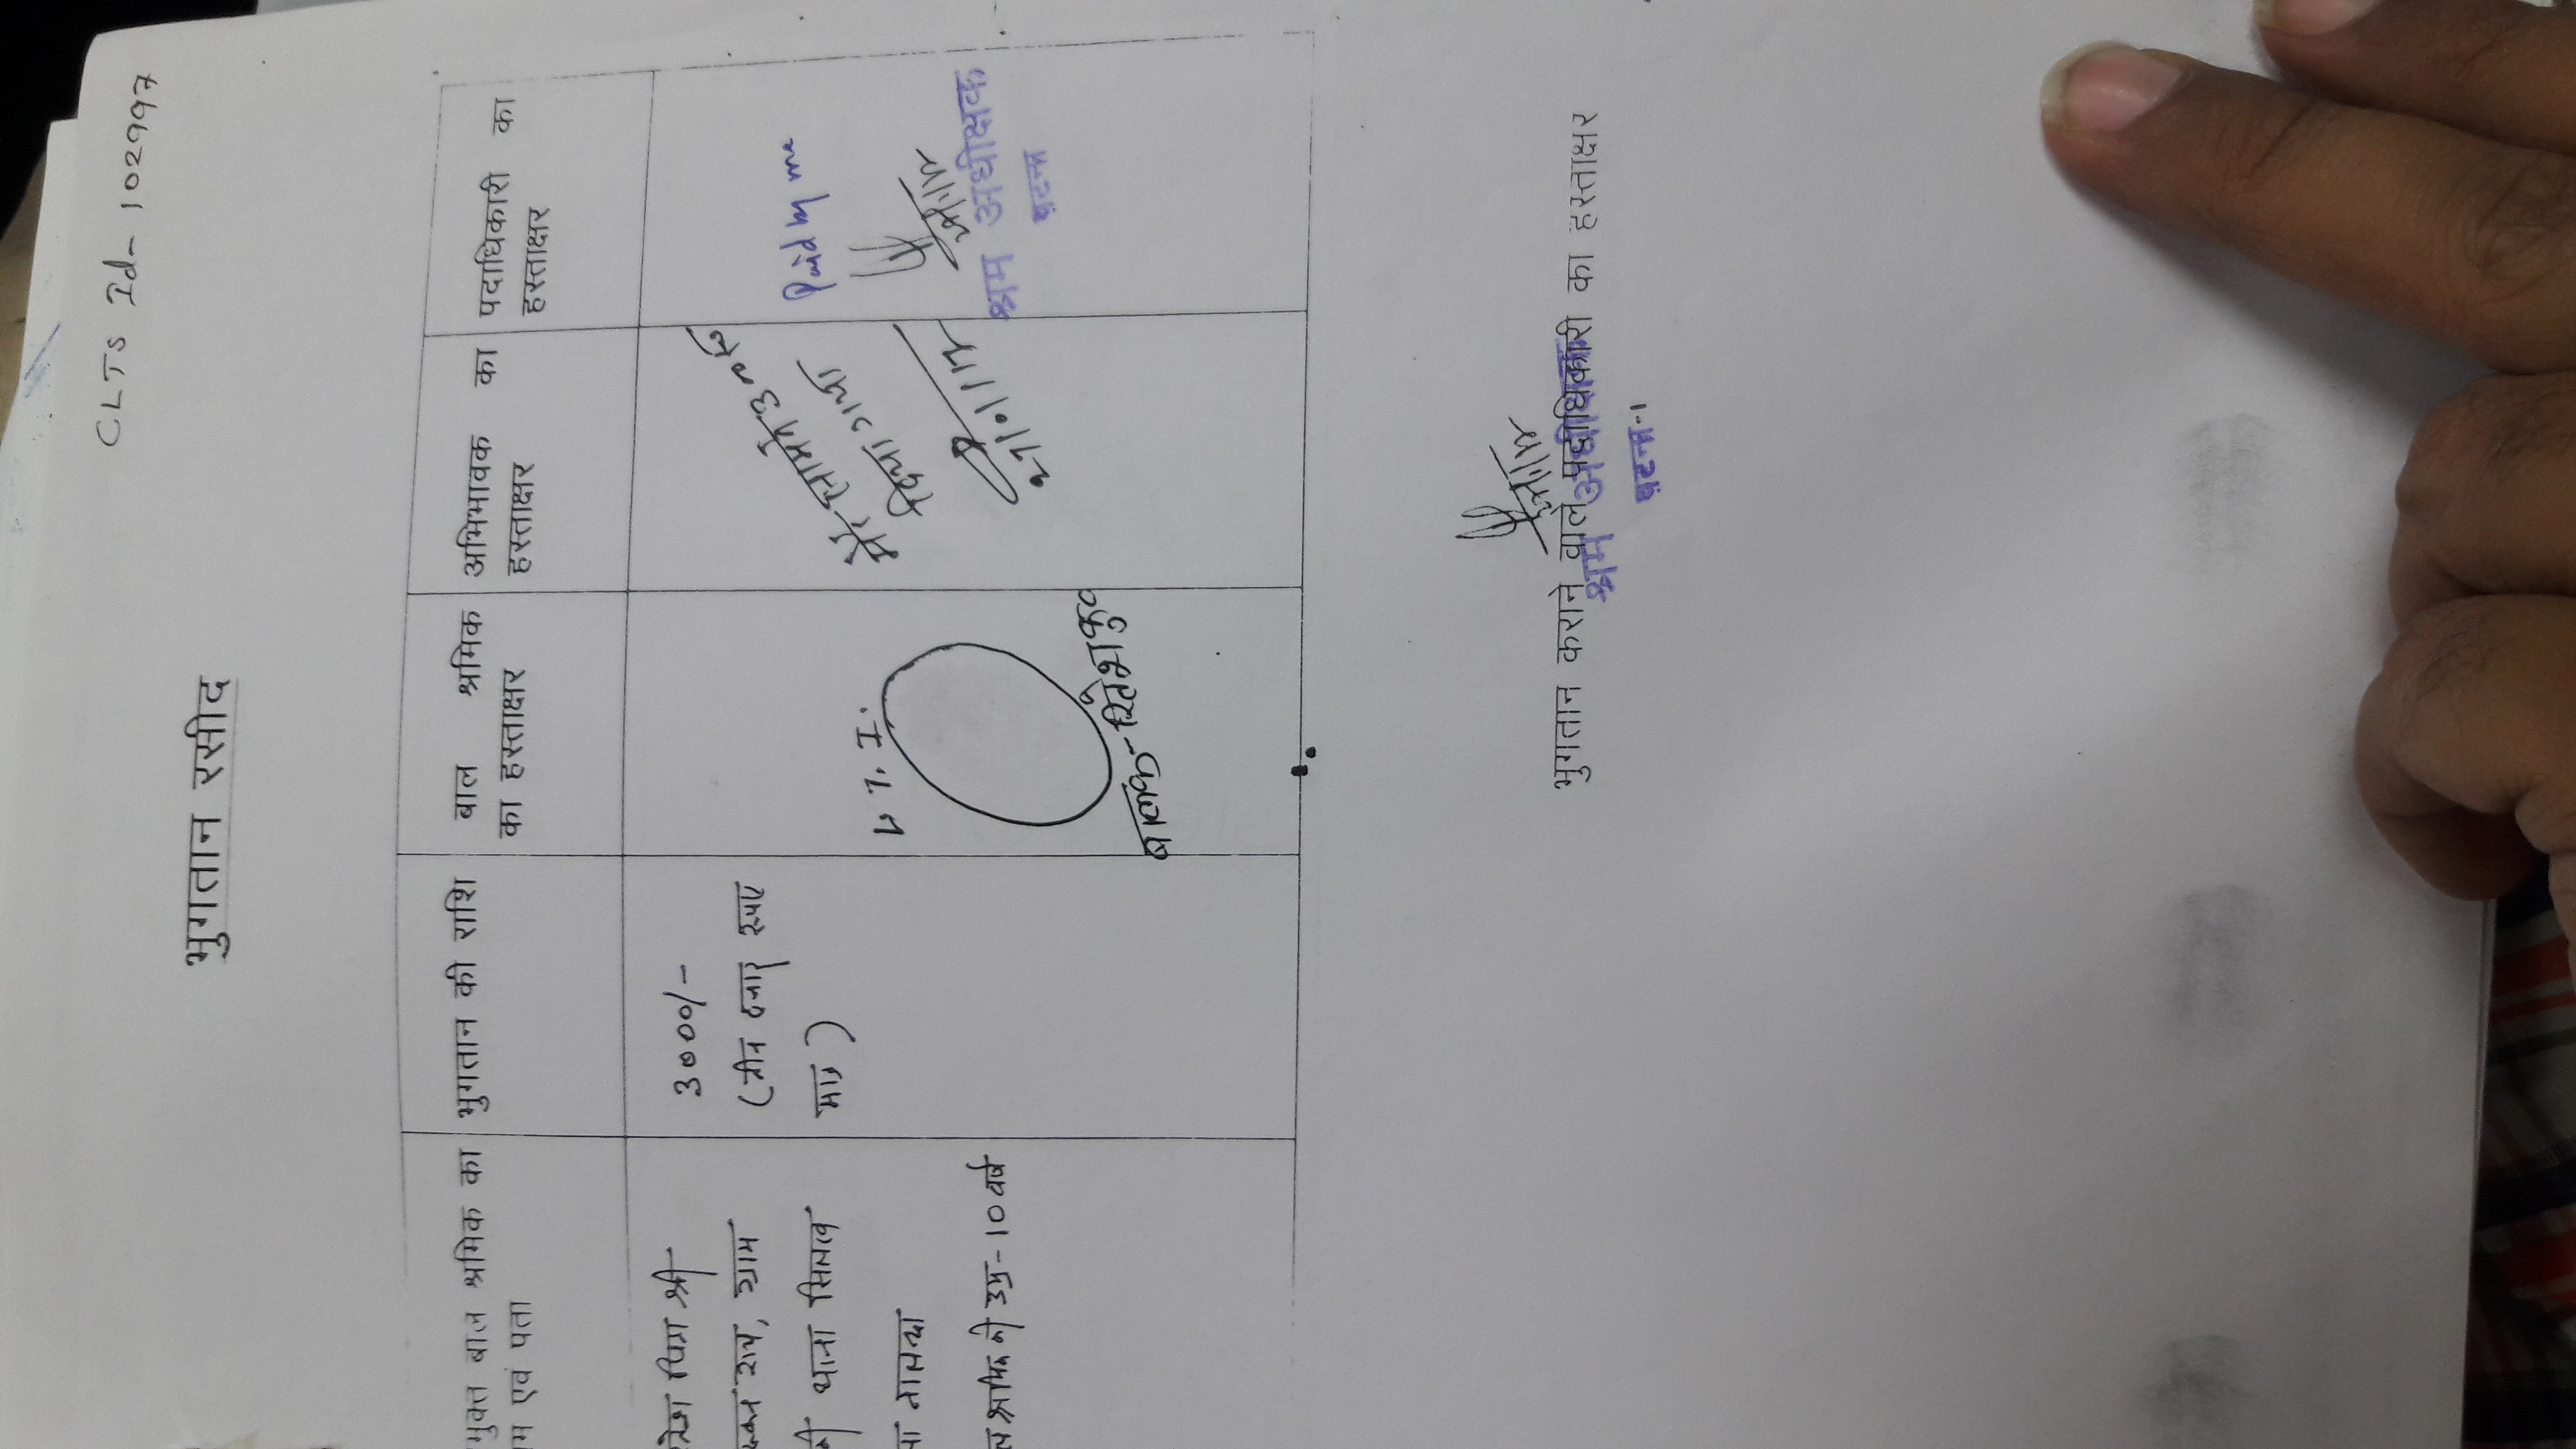 CLTS Id- 102997
भुगतान रसीद
मुक्त बाल श्रमिक का
म एवं पता
भुगतान की राशि
बाल श्रमिक
का हस्ताक्षर
अभिभावक का
हस्ताक्षर
पदाधिकारी का
हस्ताक्षर
श्री
राय, ग्राम
थाना सिलाव
नालन्दा
श्रमिक की उम्र - 10 वर्ष
3000/-
(तीन हजार रूपए
मात्र)
L. T. I.
बालक - रितेश कु०
मेरे सामने 3000 रू
दिया गया
27/01/17
Paid by me
श्रम अधीक्षक
पटना
भुगतान कराने वाले पदाधिकारी का हस्ताक्षर
श्रम अधीक्षक
पटना-1